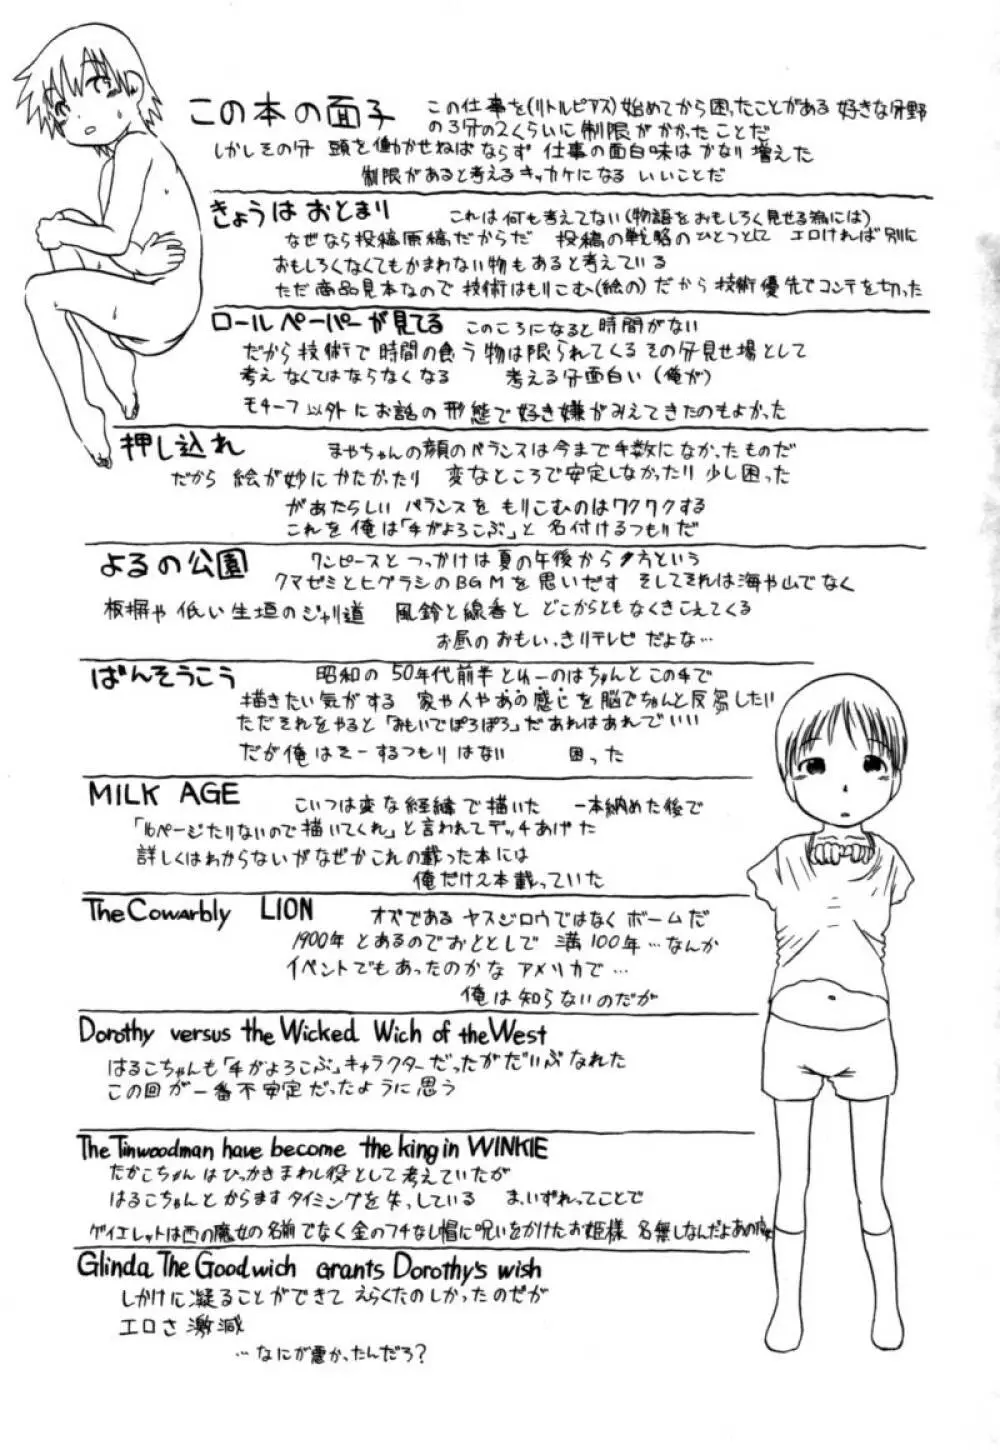 この本の面子 この仕事を(リトルピアス)始めてから困ったことがある 好きな分野
の3分の2くらいに制限がかかったことだ
しかしその分 頭を働かせねばならず 仕事の面白味はかなり増えた
制限があると考えるキッカケになる いいことだ
きょうはおとまり これは何も考えてない(物語をおもしろく見せる為には)
なぜなら投稿原稿だからだ 投稿の戦略のひとつとして エロければ別に
おもしろくなくてもかまわない物もあると考えている
ただ商品見本なので技術はもりこむ(絵の)だから技術優先でコンテを切った
ロールペーパーが見てる このころになると時間がない
だから技術で時間の食う物は限られてくる その分見せ場として
考えなくてはならなくなる 考える分面白い(俺が)
モチーフ以外にお話の形態で好き嫌がみえてきたのもよかった
押し込れ まやちゃんの顔のバランスは今まで手数になかったものだ
だから 絵が妙にかたかったり 変なところで安定しなかったり 少し困った
があたらしい バランスを もりこむのはワクワクする
これを俺は「手がよろこぶ」と名付けるつもりだ
よるの公園 ワンピースと つっかけは夏の午後から夕方という
クマゼミとヒグラシのBGMを思いだす そしてそれは海や山でなく
板塀や低い生垣のジャリ道 風鈴と線香と どこからともなくきこえてくる
お昼のおもいっきりテレビ だよな…
ばんそうこう 昭和の50年代前半とゆーのはちゃんとこの手で
描きたい気がする 家や人やあの感じを脳でちゃんと反芻したい
ただそれをやると「おもいでぽろぽろ」だ あれはあれでいい
だが俺はそーするつもりはない 困った
MILK AGE こいつは変な経緯で描いた 一本納めた後で
「16ページたりないので描いてくれ」と言われてデッチあげた
詳しくはわからないがなぜかこれの載った本には
俺だけ2本載っていた
The Cowarbly LION オズである ヤスジロウではなく ボームだ
1900年とあるのでおととしで 満100年…なんか
イベントでもあったのかな アメリカで…
俺は知らないのだが
Dorothy versus the Wicked Wich of the West
はるこちゃんも「手がよろこぶ」キャラクターだったがだいぶなれた
この回が一番不安定だったように思う
The Tinwoodman have become the king in WINKIE
たかこちゃんはひっかきまわし役として考えていたが
はるこちゃんとからますタイミングを失っしている ま、いずれってことで
ゲイエレットは西の魔女の名前でなく金のフチなし帽に呪いをかけたお姫様 名無しなんだよあの
Glinda The Good wich Grants Dorothy's wish
しかけに凝ることができて えらくたのしかったのだが
エロさ激減
…なにが悪かったんだろ?